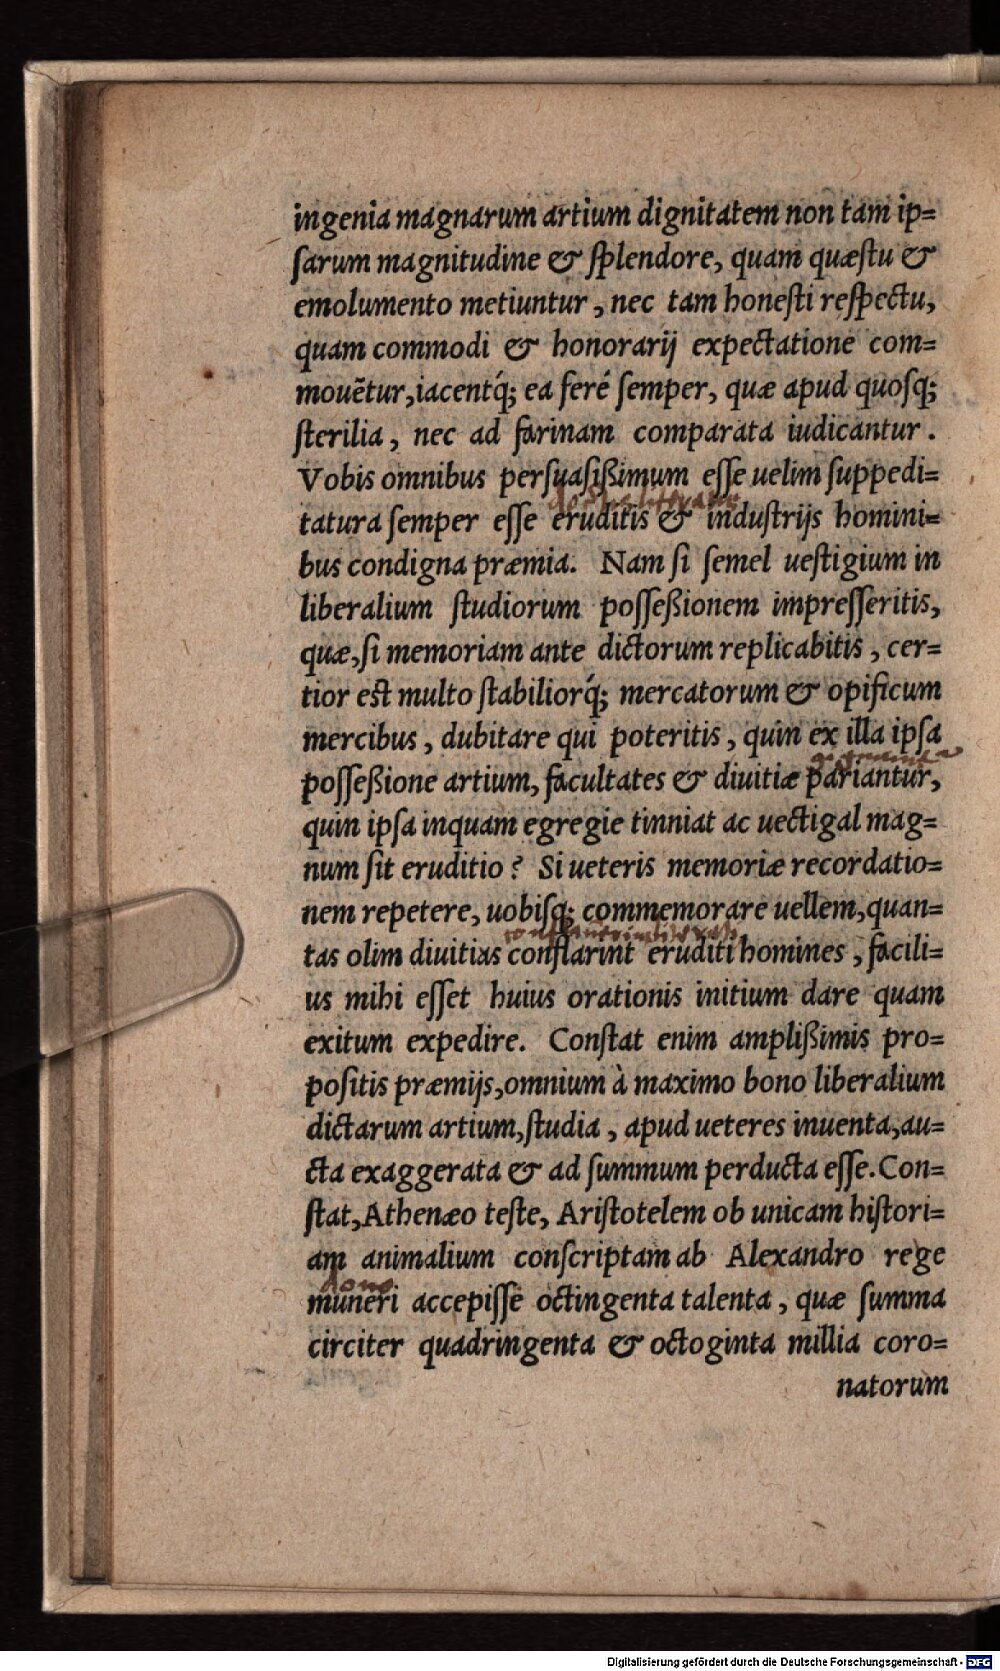 ingenia magnarum artium dignitatem non tam ip=
ſarum magnitudine & ſplendore, quam quæſtu &
emolumento metiuntur, nec tam honeſti reſpectu,
quam commodi & honorarij expectatione com=
mouẽtur, iacentq́; ea feré ſemper, quæ apud quoſq;
ſterilia, nec ad farinam comparata iudicantur.
Vobis omnibus perſuaſißimum eſſe uelim ſuppedi=
tatura ſemper eſſe eruditis & induſtrijs homini=
bus condigna præmia. Nam ſi ſemel ueſtigium in
liberalium ſtudiorum poſſeßionem impreſſeritis,
quæ, ſi memoriam ante dictorum replicabitis, cer=
tior est multo ſtabiliorq́; mercatorum & opificum
mercibus, dubitare qui poteritis, quin ex illa ipſa
poſſeßione artium, facultates & diuitiæ pariantur,
quin ipſa inquam egregie tinniat ac uectigal mag=
num ſit eruditio? Si ueteris memoriæ recordatio=
nem repetere, uobiſq; commemorare uellem, quan=
tas olim diuitias conflarint eruditi homines, facili=
us mihi eſſet huius orationis initium dare quam
exitum expedire. Conſtat enim amplißimis pro=
poſitis præmijs, omnium à maximo bono liberalium
dictarum artium, ſtudia, apud ueteres inuenta, au=
cta exaggerata & ad ſummum perducta eſſe. Con=
ſtat, Athenæo teſte, Ariſtotelem ob unicam hiſtori=
am animalium conſcriptam ab Alexandro rege
dono
muneri accepiſſe octingenta talenta, quæ ſumma
circiter quadringenta & octoginta millia coro=
natorum
Digitalisierung gefördert durch die Deutsche Forschungsgemeinschaft - DFG